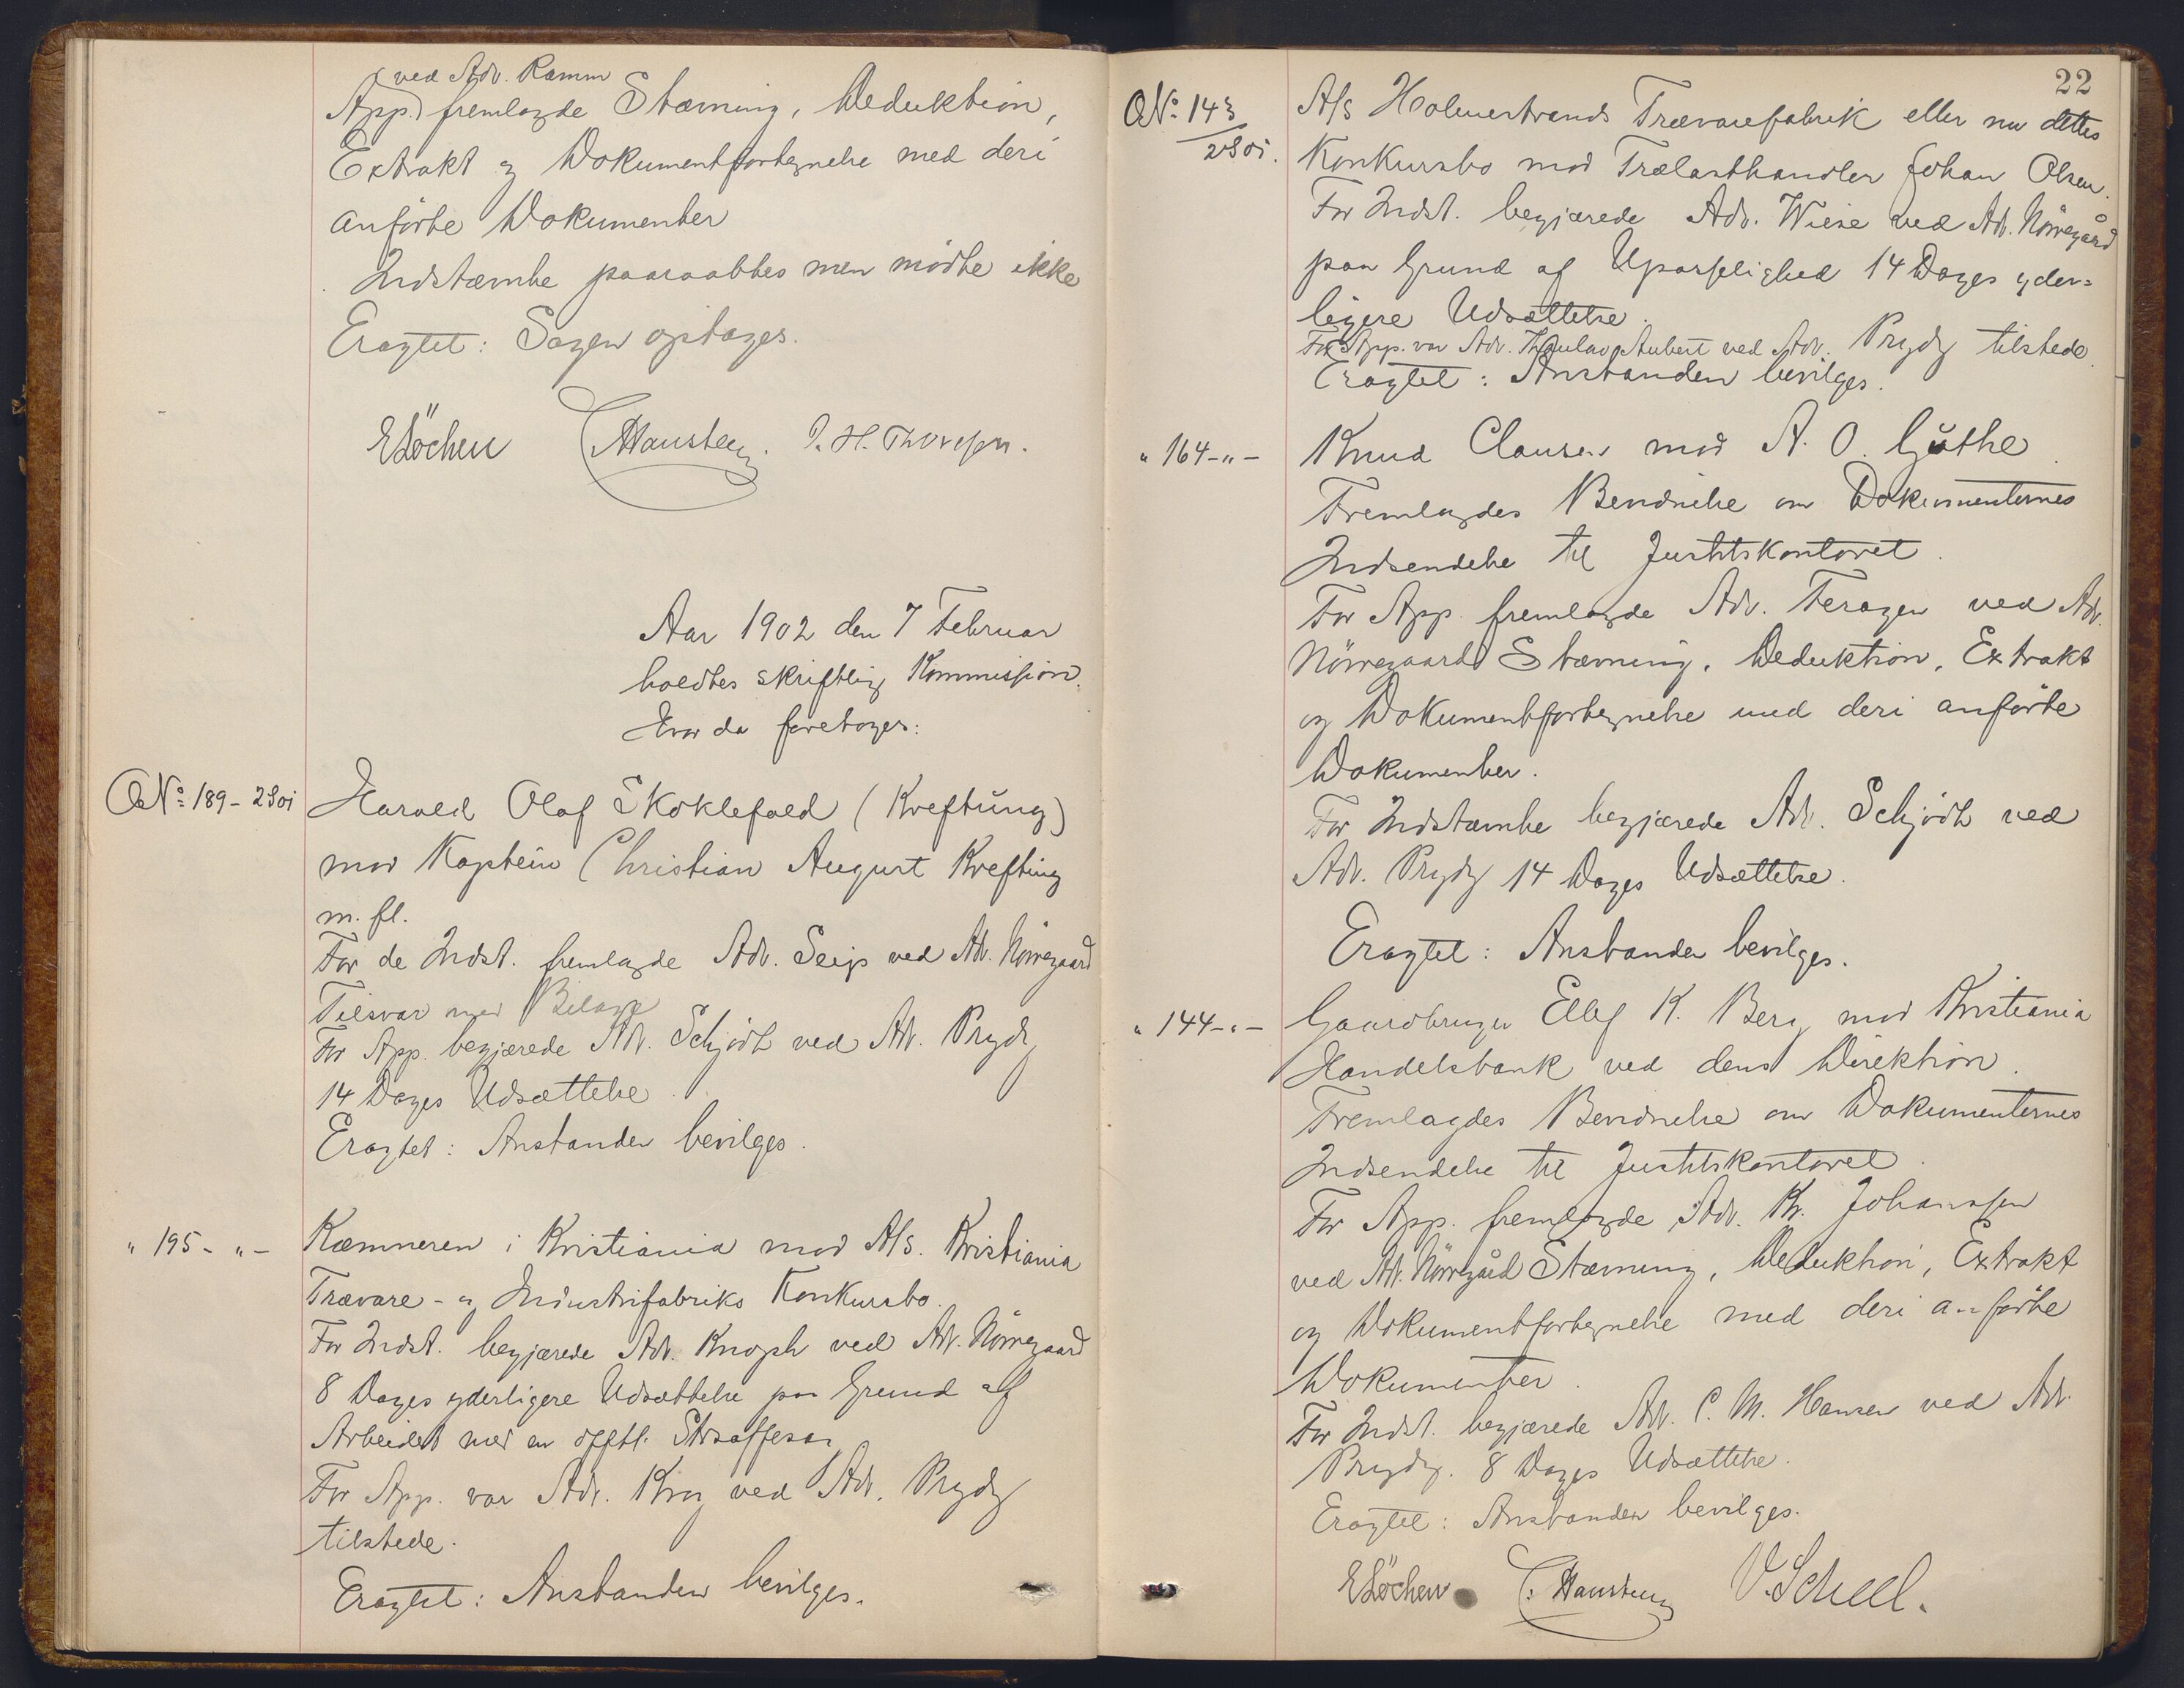 ved Adv. Ramm
App. fremlagde Stævning, Deduktion,
Extrakt og Dokumentfortegnelse med deri
anførte Dokumenter
Indstævnte paaraabtes men mødte ikke
Eragtet: Sagen optages.
E Löchen C Hansteen. J. H. Thoresen.
Aar 1902 den 7 Februar
holdtes skriftlig Kommission.
Hvor da foretoges:
No 189 - 2 S 01
Harald Olaf Skoklefald (Krefting)
mod Kaptein Christian August Krefting
m. fl.
For de Indst. fremlagde Adv. Seip ved Adv. Nörregaard
Tilsvar med Bilage
For App. begjærede Adv. Schjödt ved Adv. Prydz
14 Dages Udsættelse.
Eragtet: Anstanden bevilges.
" 195 - " -
Kæmneren i Kristiania mod A/s. Kristiania
Trævare- og Industrifabriks Konkursbo.
For Indst. begjærede Adv. Knoph ved Adv. Nörregaard
8 Dages yderligere Udsættelse paa Grund af
Arbeidet med en offtl. Straffesag
For App. var Adv. Krog ved Adv. Prydz
tilstede.
Eragtet: Anstanden bevilges.
22
No 143
2 S 01.
A/s Holmestrands Trævarefabrik eller nu dettes
Konkursbo mod Trælasthandler Johan Olsen.
For Indst. begjærede Adv. Wiese ved Adv. Nörregård
paa Grund af Upasselighed 14 Dages yder=
ligere Udsættelse.
For App. var Adv. Thaulav Aubert ved Adv. Prydz tilstede.
Eragtet: Anstanden bevilges.
" 164 - " -
Knud Clausen mod A. O. Gäthe.
Fremlagdes Bevidnelse om Dokumenternes
Indsendelse til Justitskontoret.
For App. fremlagde Adv. Feragen ved Adv.
Nörregaard Stævning, Deduktion, Extrakt
og Dokumentfortegnelse med deri anførte
Dokumenter.
For Indstævnte begjærede Adv. Schjödt ved
Adv. Prydz 14 Dages Udsættelse.
Eragtet: Anstanden bevilges.
" 144 - " -
Gaardbruger Ellef K. Berg mod Kristiania
Handelsbank ved dens Direktion.
Fremlagdes Bevidnelse om Dokumenternes
Indsendelse til Justitskontoret.
For App. fremlagde Adv. Kr. Johanssen
ved Adv. Nörregård Stævning, Deduktion, Extrakt
og Dokumentfortegnelse med deri anførte
Dokumenter.
For Indst. begjærede Adv. C. M. Hansen ved Adv.
Prydz. 8 Dages Udsættelse.
Eragtet: Anstanden bevilges.
E Löchen C. Hansteen V. Scheel.